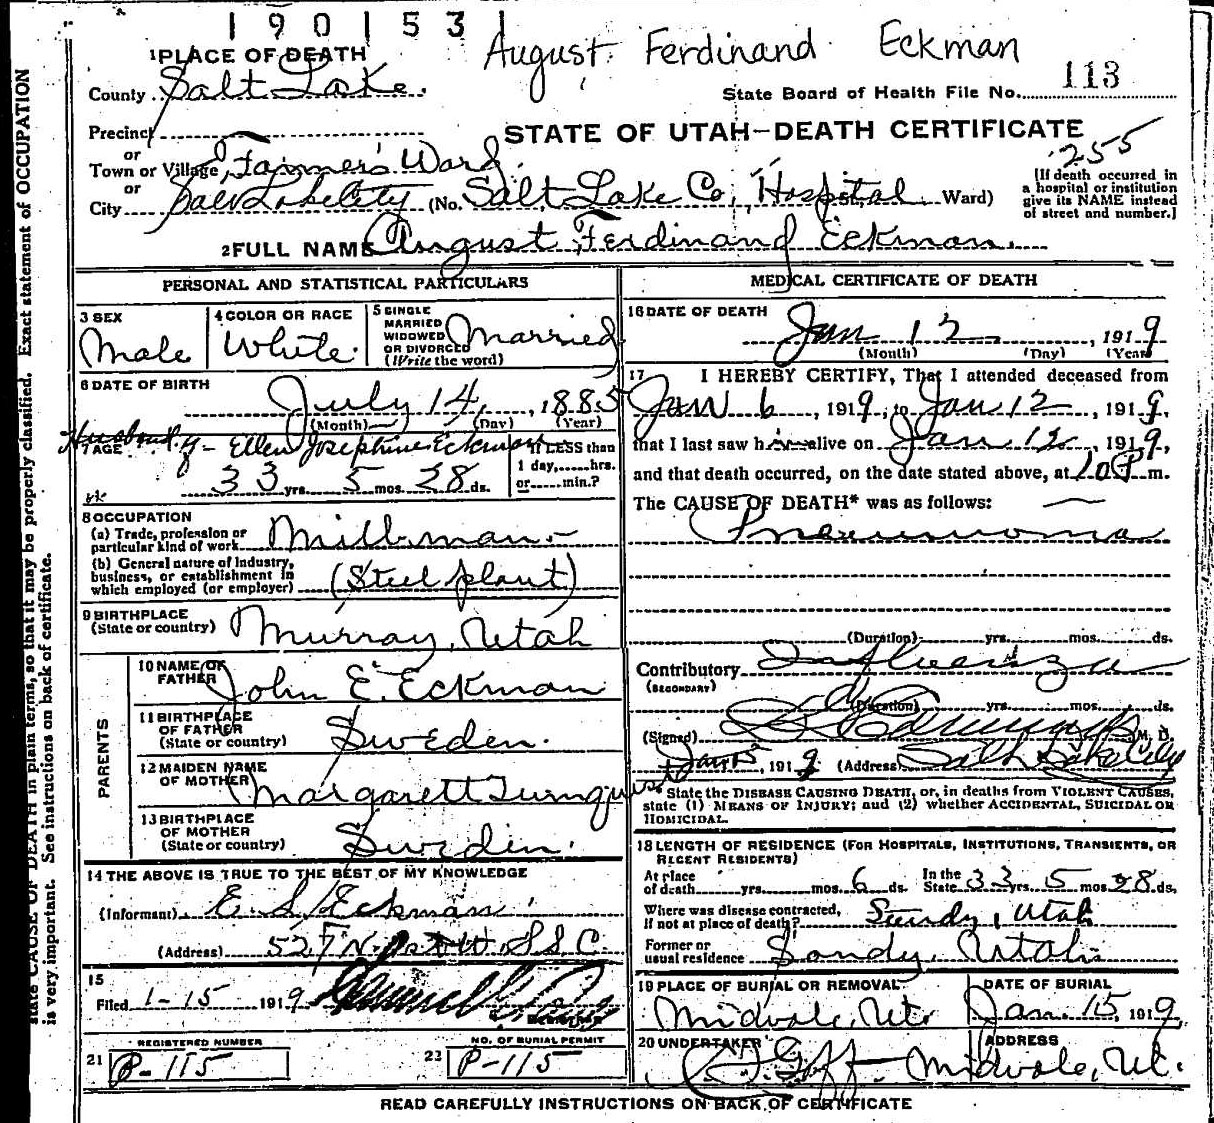 190153
August Ferdinand Eckman
1 PLACE OF DEATH
County Salt Lake.
State Board of Health File No. 113
Precinct
STATE OF UTAH—DEATH CERTIFICATE
or
255
Town or Village, Farmer's Ward.
or
City Salt Lake City (No. Salt Lake Co, Hospital St., Ward)
[If death occurred in
a hospital or institution
give its NAME instead
of street and number.]
2 FULL NAME August Ferdinand Eckman.
PERSONAL AND STATISTICAL PARTICULARS
3 SEX
Male
4 COLOR OR RACE
White.
5 SINGLE
MARRIED
WIDOWED
OR DIVORCED
(Write the word)
Married
6 DATE OF BIRTH
July 14, 1885
(Month) (Day) (Year)
Husband of - Ellen Josephine Eckman
7 AGE
33 yrs. 5 mos. 28 ds.
If LESS than
1 day, hrs.
or min.?
8 OCCUPATION
(a) Trade, profession or
particular kind of work Millman-
(b) General nature of industry,
business, or establishment in
which employed (or employer) (Steel plant)
9 BIRTHPLACE
(State or country) Murray, Utah
PARENTS
10 NAME OF
FATHER John E. Eckman
11 BIRTHPLACE
OF FATHER
(State or country) Sweden.
12 MAIDEN NAME
OF MOTHER Margarett
13 BIRTHPLACE
OF MOTHER
(State or country) Sweden.
14 THE ABOVE IS TRUE TO THE BEST OF MY KNOWLEDGE
(Informant) E. S. Eckman
(Address) 527 N. S. L. C.
15
Filed 1-15 1919
REGISTRAR
REGISTERED NUMBER
21 P-115
NO. OF BURIAL PERMIT
22 P-115
MEDICAL CERTIFICATE OF DEATH
16 DATE OF DEATH
Jan 12, 1919
(Month) (Day) (Year)
17 I HEREBY CERTIFY, That I attended deceased from
Jan 6, 1919, to Jan 12, 1919,
that I last saw him alive on Jan 12, 1919,
and that death occurred, on the date stated above, at 10 P m.
The CAUSE OF DEATH* was as follows:
Pneumonia
(Duration) yrs. mos. ds.
Contributory Influenza
(SECONDARY)
(Duration) yrs. mos. ds.
(Signed) M. D.
Jan 15, 1919 (Address) Salt Lake City
* State the DISEASE CAUSING DEATH, or, in deaths from VIOLENT CAUSES,
state (1) MEANS OF INJURY; and (2) whether ACCIDENTAL, SUICIDAL OR
HOMICIDAL.
18 LENGTH OF RESIDENCE (FOR HOSPITALS, INSTITUTIONS, TRANSIENTS, OR
RECENT RESIDENTS)
At place
of death yrs. mos. 6 ds.
In the
State 33 yrs. 5 mos. 28 ds.
Where was disease contracted,
if not at place of death? Sandy, Utah
Former or
usual residence Sandy, Utah.
19 PLACE OF BURIAL OR REMOVAL
Midvale, Ut.
DATE OF BURIAL
Jan. 15, 1919
20 UNDERTAKER
Goff
ADDRESS
Midvale, Ut.
READ CAREFULLY INSTRUCTIONS ON BACK OF CERTIFICATE
state CAUSE OF DEATH in plain terms, so that it may be properly classified. Exact statement of OCCUPATION
is very important. See instructions on back of certificate.